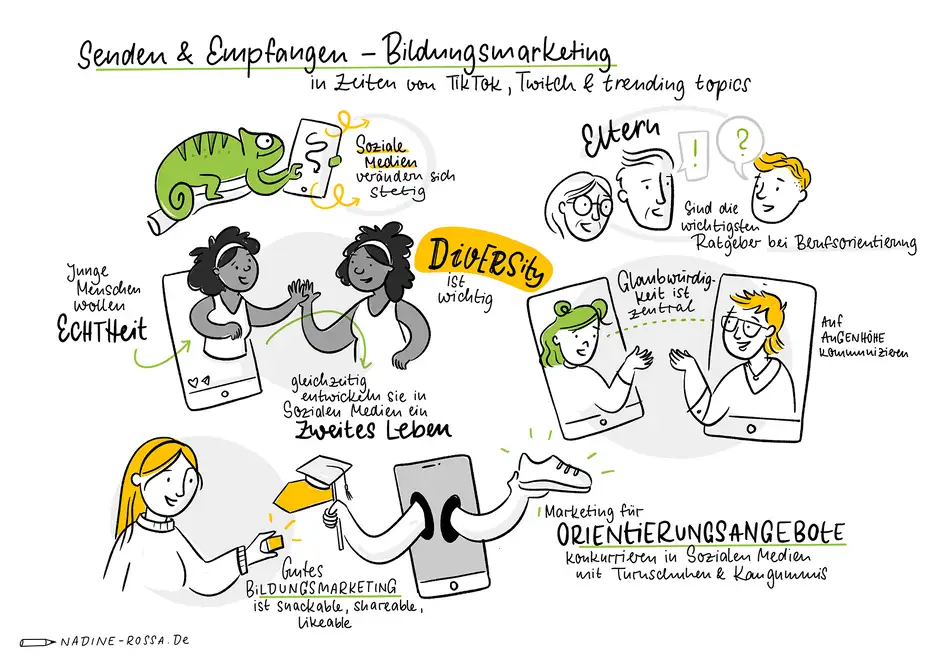 Senden & Empfangen – Bildungsmarketing
in Zeiten von TikTok, Twitch & trending topics
Soziale
Medien
verändern sich
stetig
Eltern
!
?
Sind die
wichtigsten
Ratgeber bei Berufsorientierung
Junge
Menschen
wollen
ECHTHeit
DiVERSity
ist
wichtig
gleichzeitig
entwickeln sie in
Sozialen Medien ein
Zweites Leben
Glaubwürdig-
keit ist
zentral
Auf
AUGENHÖHE
kommunizieren
Gutes
BILDUNGSMARKETING
ist snackable, shareable,
likeable
Marketing für
ORIENTIERUNGSANGEBOTE
konkurrieren in Sozialen Medien
mit Turnschuhen & Kaugummis
NADINE-ROSSA.De